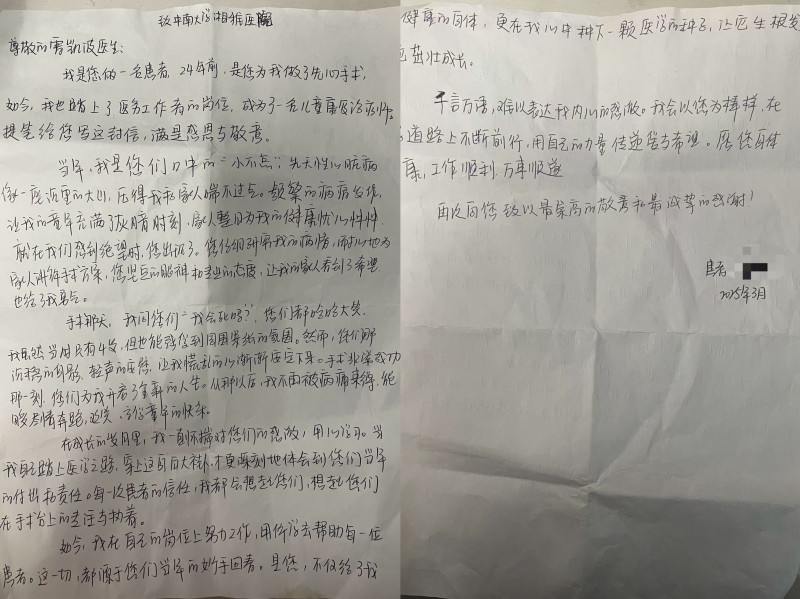 致中南大学湘雅医院
尊敬的雷凯波医生:
我是您的一名患者,24年前,是您为我做了先心手术,
如今,我也踏上了医务工作者的岗位,成为了一名儿童康复治疗师
提笔给您写这封信,满是感恩与敬意。
当年,我是你们口中的“小不点”,先天性心脏病
像一座沉重的大山,压得我和家人喘不过气。频繁的病痛发作,
让我的童年充满了灰暗时刻,家人整日为我的健康忧心忡忡
就在我们感到绝望时,您出现了。您仔细研究我的病情,耐心地为
家人讲解手术方案,您坚定的眼神和专业的态度,让我的家人看到了希望
也给了我勇气。
手术那天,我问你们“我会死吗?”,你们都哈哈大笑,
我虽然当时只有4岁,但也能感受到周围紧张的氛围。然而,你们那
沉稳的身影,轻声的安慰,让我慌乱的心渐渐安定下来。手术非常成功
那一刻,你们为我开启了全新的人生。从那以后,我不再被病痛束缚,能
够尽情奔跑,欢笑,享受童年的快乐。
在成长的岁月里,我一直怀揣对你们的感激,用心学习。当
我自己踏上医学之路,穿上这身白大褂,才更深刻地体会到你们当年
的付出和责任。每一次患者的信任,我都会想起你们,想起你们
在手术台上的专注与执着。
如今,我在自己的岗位上努力工作,用所学去帮助每一位
患者。这一切,都源于你们当年的妙手回春。是您,不仅给了我
健康的身体,更在我心中种下一颗医学的种子,让它生根发
茁壮成长。
千言万语,难以表达我内心的感激。我会以您为榜样,在
道路上不断前行,用自己的力量传递爱与希望。愿您身体
康,工作顺利,万事顺遂
再次向您致以最崇高的敬意和最诚挚的感谢!
患者
2025年3月